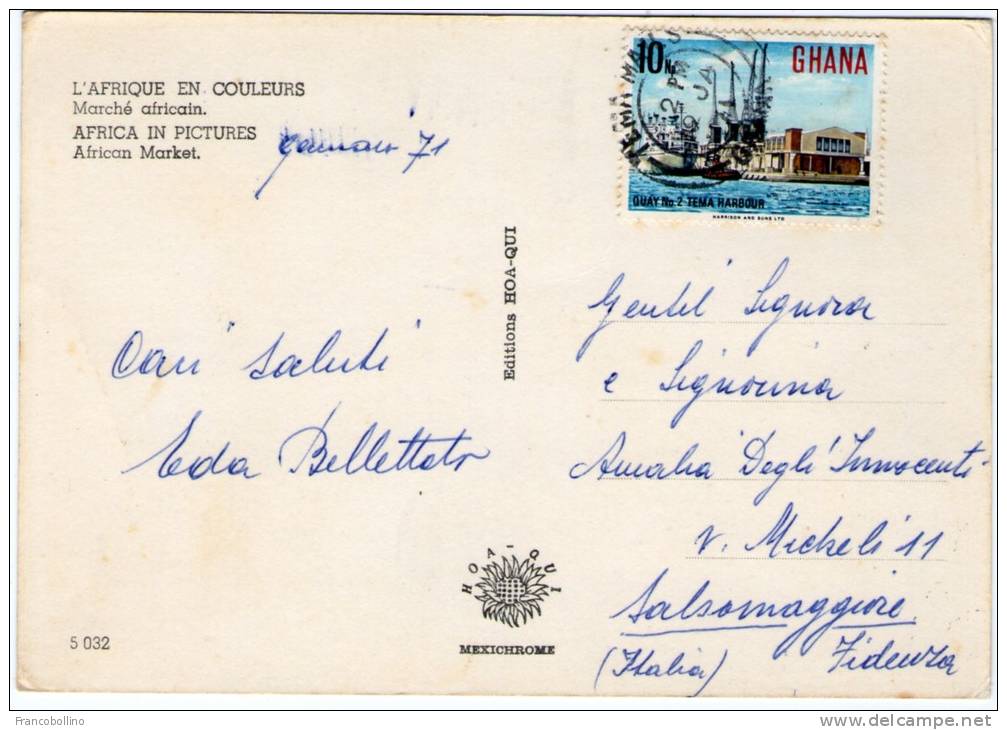 L'AFRIQUE EN COULEURS
Marché africain.
AFRICA IN PICTURES
African Market.
Gennaio 71
Cari saluti
Eda Bellettato
5 032
Editions HOA-QUI
HOA-QUI
MEXICHROME
10 NP
GHANA
QUAY No. 2 TEMA HARBOUR
HARRISON AND SONS LTD
TEMA
12 PM
JA
71
GHANA
Gentil Signora
e Signorina
Amalia Degli Innocenti
v. Micheli 11
Salsomaggiore
Fidenza
(Italia)
Francobollino
www.delcampe.net